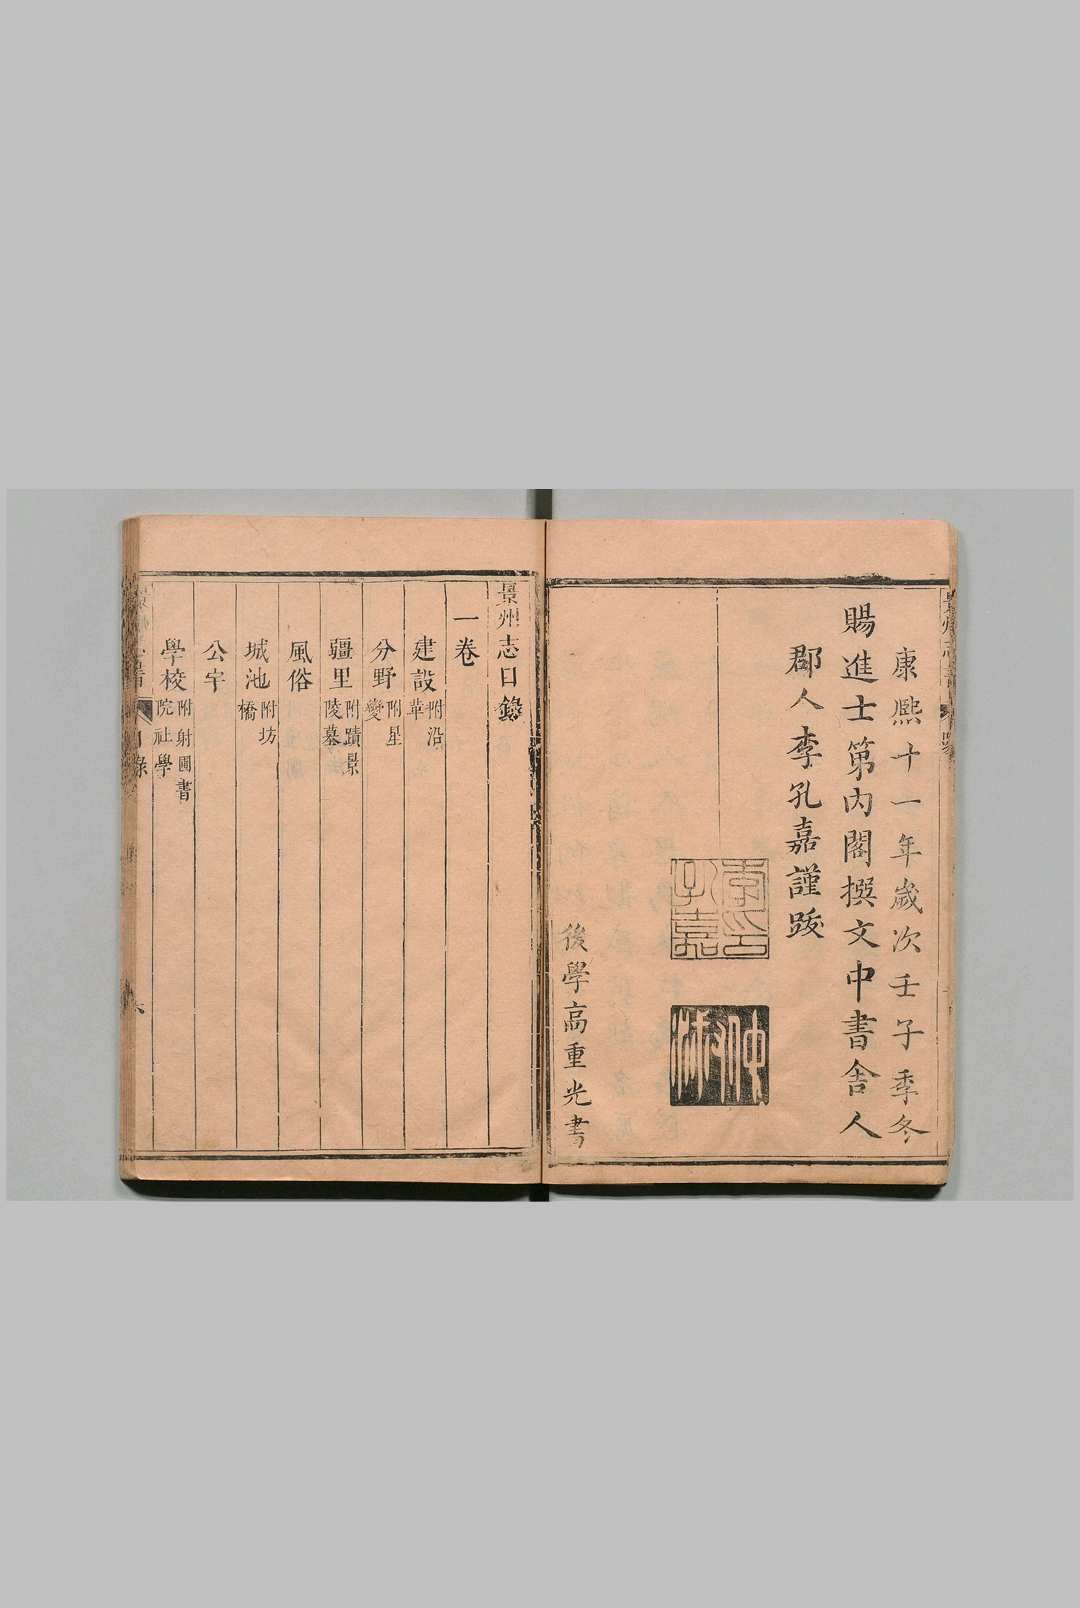 康熙十一年歲次壬子季冬
賜進士第內閣撰文中書舍人
郡人李孔嘉謹跋
李孔嘉印
後學高重光書
景州志目錄
一卷
建設附沿革
分野附星變
疆里附蹟景陵墓
風俗
城池附坊橋
公宇
學校附射圃書院社學